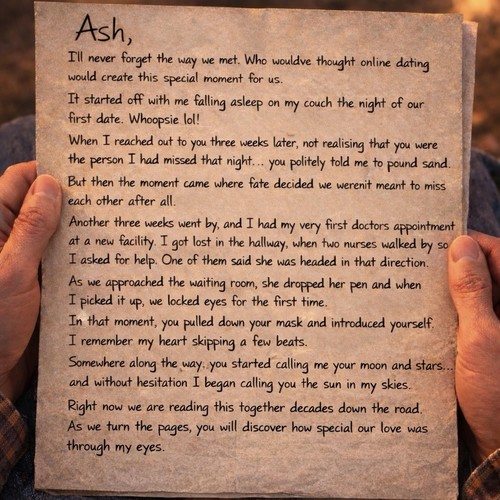 Ash,
I'll never forget the way we met. Who wouldve thought online dating
would create this special moment for us.
It started off with me falling asleep on my couch the night of our
first date. Whoopsie lol!
When I reached out to you three weeks later, not realising that you were
the person I had missed that night... you politely told me to pound sand.
But then the moment came where fate decided we werenit meant to miss
each other after all.
Another three weeks went by, and I had my very first doctors appointment
at a new facility. I got lost in the hallway, when two nurses walked by so
I asked for help. One of them said she was headed in that direction.
As we approached the waiting room, she dropped her pen and when
I picked it up, we locked eyes for the first time.
In that moment, you pulled down your mask and introduced yourself.
I remember my heart skipping a few beats.
Somewhere along the way...you started calling me your moon and stars...
and without hesitation I began calling you the sun in my skies.
Right now we are reading this together decades down the road.
As we turn the pages, you will discover how special our love was
through my eyes.